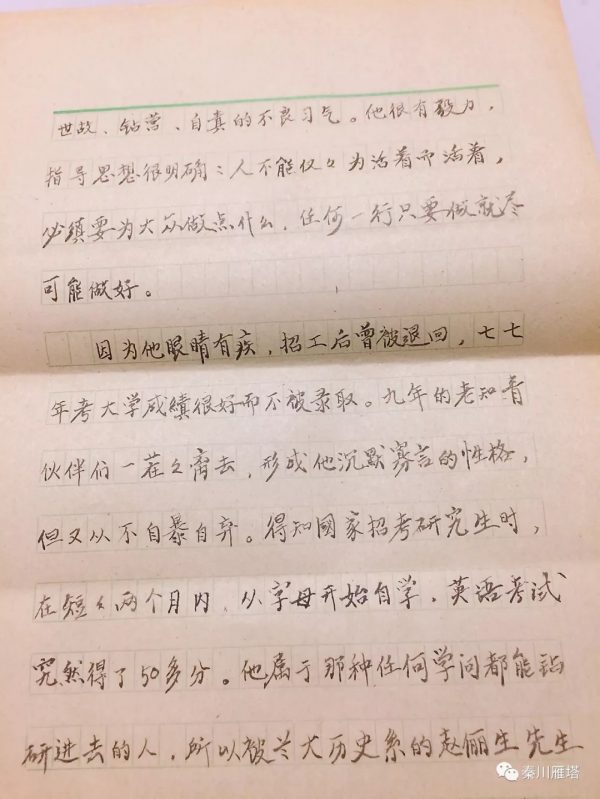 世故、钻营、自真的不良习气。他很有毅力，
指导思想很明确：人不能仅々为活着而活着，
必须要为大众做点什么，任何一行只要做就尽
可能做好。
因为他眼睛有疾，招工后曾被退回，七七
年考大学成绩很好而不被录取。九年的老知青
伙伴们一茬々离去，形成他沉默寡言的性格，
但又从不自暴自弃。得知國家招考研究生时，
在短々两个月内，从字母开始自学，英语考试
究然得了50多分。他属于那种任何学问都能钻
研进去的人，所以被兰大历史系的赵俪生先生
秦川雁塔